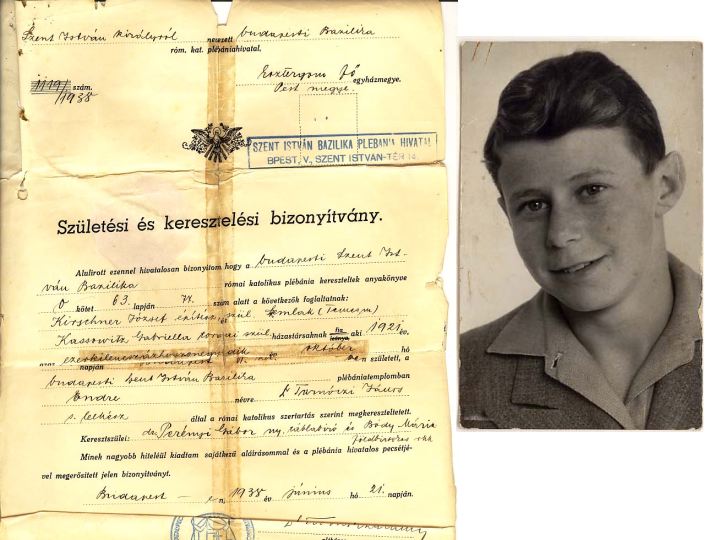 Szent István királyról nevezett budapesti Bazilika
róm. kat. plébániahivatal.
1119/ szám.
/1938
Esztergom Fő egyházmegye.
Pest megye.
SZENT ISTVÁN BAZILIKA PLEBÁNIA HIVATAL
BPEST, V., SZENT ISTVÁN-TÉR 14.
Születési és keresztelési bizonyítvány.
Alulirott ezennel hivatalosan bizonyitom hogy a budapesti Szent Ist-
ván Bazilika római katolikus plébánia kereszteltek anyakönyve
O kötet 63. lapján szám alatt a következők foglaltatnak:
Kirschner József épitész, szül.
Kassowitz Gabriella tornai szül. házastársaknak fia aki 1921 év
október hó
napján én született, a
budapesti Szent István Bazilika plébániatemplomban
Endre névre Dr Turnóczi János
s. lelkész által a római katolikus szertartás szerint megkereszteltetett.
Keresztszülei: dr. Perényi Gábor ny. táblabíró és Bódy Mária
földbirtokos
Minek nagyobb hiteléül kiadtam sajátkezű aláirásommal és a plébánia hivatalos pecsétjé-
vel megerősitett jelen bizonyitványt.
Budapest – en, 1938 év június hó 21. napján.